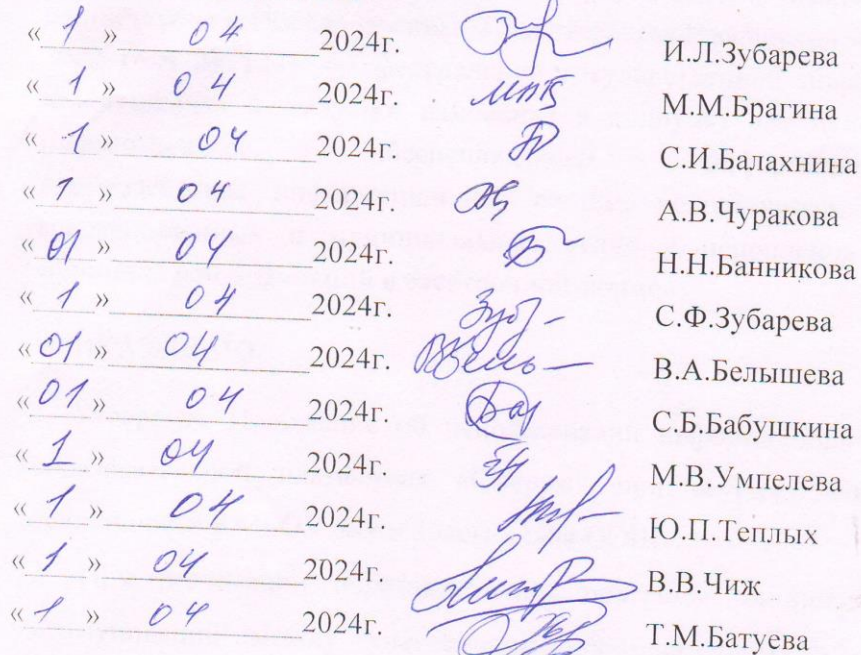 « 1 » 04 2024г. И.Л.Зубарева
« 1 » 04 2024г. М.М.Брагина
« 1 » 04 2024г. С.И.Балахнина
« 1 » 04 2024г. А.В.Чуракова
« 01 » 04 2024г. Н.Н.Банникова
« 1 » 04 2024г. С.Ф.Зубарева
« 01 » 04 2024г. В.А.Белышева
« 01 » 04 2024г. С.Б.Бабушкина
« 1 » 04 2024г. М.В.Умпелева
« 1 » 04 2024г. Ю.П.Теплых
« 1 » 04 2024г. В.В.Чиж
« 1 » 04 2024г. Т.М.Батуева